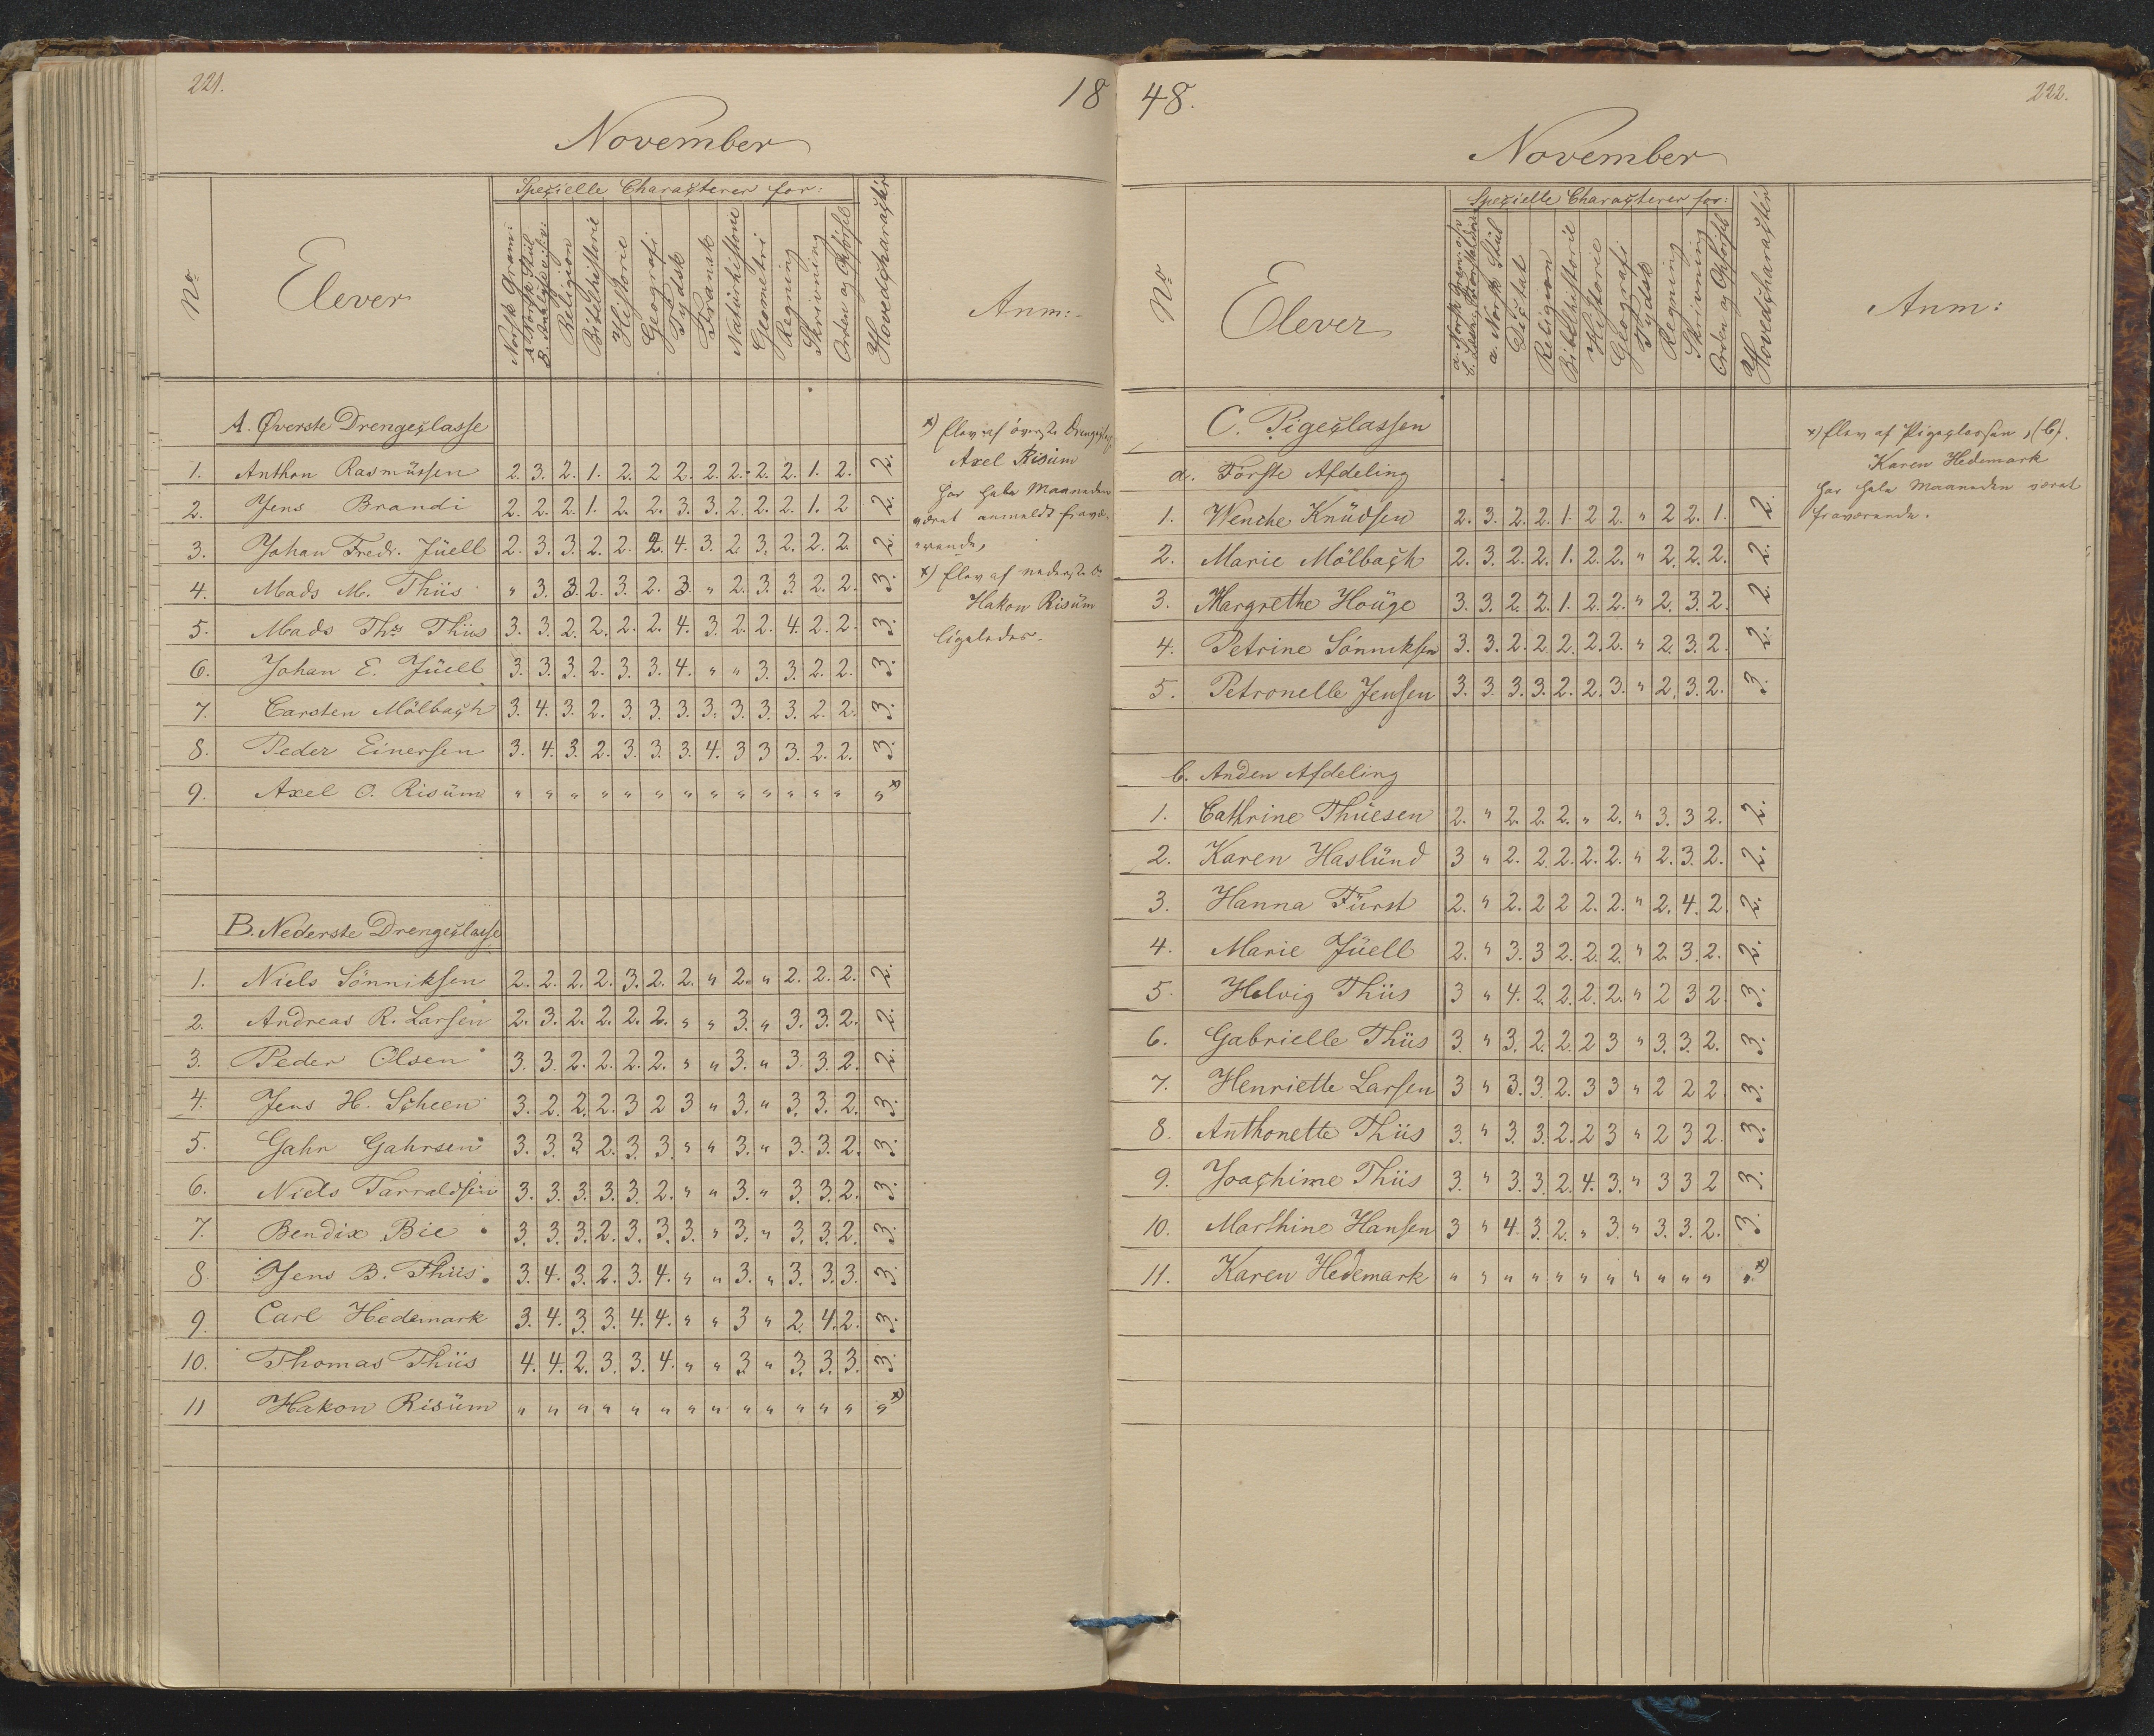 221.
18
November
Spezielle Characterer for:
No
Elever
Norsk Gram:
a. Norsk Stiil
B. Analyse
Religion
Bibelhistorie
Historie
Geografi
Tydsk
Fransk
Naturhistorie
Geometri
Regning
Skrivning
Orden og Opførsel
Hovedcharacter
Anm:
A. Øverste Drengeclasse
1. Anthon Rasmüssen 2. 3. 2. 1. 2. 2 2. 2. 2. 2. 2. 1. 2. 2.
2. Jens Brandi 2. 2. 2. 1. 2. 2. 3. 3. 2. 2. 2. 1. 2 2.
3. Johan Fredr. Jüell 2. 3. 3. 2. 2. 2. 4. 3. 2. 3. 2. 2. 2. 2.
4. Mads M. Thiis " 3. 3. 2. 3. 2. 3. " 2. 3. 3. 2. 2. 3.
5. Mads Ths Thiis 3. 3. 2. 2. 2. 2. 4. 3. 2. 2. 4. 2. 2. 3.
6. Johan E. Jüell 3. 3. 3. 2. 3. 3. 4. " " 3. 3. 2. 2. 3.
7. Carsten Mölbach 3. 4. 3. 2. 3. 3. 3. 3. 3. 3. 3. 2. 2. 3.
8. Peder Einersen 3. 4. 3. 2. 3. 3. 3. 4. 3 3 3. 2. 2. 3.
9. Axel O. Risüm " " " " " " " " " " " " " " x)
B. Nederste Drengeclasse
1. Niels Sönniksen 2. 2. 2. 2. 3. 2. 2. " 2. " 2. 2. 2. 2.
2. Andreas R. Larsen 2. 3. 2. 2. 2. 2. " " 3. " 3. 3. 2. 2.
3. Peder Olsen 3. 3. 2. 2. 2. 2. " " 3. " 3. 3. 2. 2.
4. Jens H. Scheen 3. 2. 2. 2. 3 2 3 " 3. " 3. 3. 2. 3.
5. Gahr Gahrsen 3. 3. 3 2. 3. 3. " " 3. " 3. 3. 2. 3.
6. Niels Tarraldsen 3. 3. 3. 3. 3. 2. " " 3. " 3. 3. 2. 3.
7. Bendix Bie 3. 3. 3. 2. 3. 3. 3. " 3. " 3. 3. 2. 3.
8. Jens B. Thiis 3. 4. 3. 2. 3. 4. " " 3. " 3. 3. 3. 3.
9. Carl Hedemark 3. 4. 3. 3. 4. 4. " " 3 " 2. 4. 2. 3.
10. Thomas Thiis 4. 4. 2. 3. 3. 4. " " 3. " 3. 3. 3. 3.
11 Hakon Risüm " " " " " " " " " " " " " " x)
x) Elev af överste Drengecl
Axel Risüm
har hele Maaneden
været anmeldt fravæ-
rende,
x) Elev af nederste D.
Hakon Risüm
ligeledes.
48.
222.
November
Spezielle Characterer for:
No
Elever
a. Norsk Gram:
a. Norsk Stiil
Dictat
Religion
Bibelhistorie
Historie
Geografi
Tydsk
Regning
Skrivning
Orden og Opførsel
Hovedcharacter
Anm:
C. Pigeclassen
a. Förste Afdeling
1. Wenche Knüdsen 2. 3. 2. 2. 1. 2 2. " 2 2. 1. 2.
2. Marie Mölbach 2. 3. 2. 2. 1. 2. 2. " 2. 2. 2. 2.
3. Margrethe Houge 3. 3. 2. 2. 1. 2. 2. " 2. 3. 2. 2.
4. Petrine Sönniksen 3. 3. 2. 2. 2. 2. 2. " 2. 3. 2. 2.
5. Petronelle Jensen 3. 3. 3. 3. 2. 2. 3. " 2. 3. 2. 3.
b. Anden Afdeling
1. Cathrine Thuesen 2. " 2. 2. 2. " 2. " 3. 3 2. 2.
2. Karen Haslünd 3 " 2. 2. 2. 2. 2. " 2. 3. 2. 2.
3. Hanna Fürst 2. " 2. 2 2 2. 2. " 2. 4. 2. 2.
4. Marie Jüell 2. " 3. 3 2. 2. 2. " 2. 3. 2. 2.
5. Helvig Thiis 3 " 4. 2. 2. 2. 2. " 2 3 2. 3.
6. Gabrielle Thiis 3. " 3. 2. 2. 2 3 " 3. 3. 2. 3.
7. Henriette Larsen 3 " 3. 3. 2. 3 3 " 2 2 2. 3.
8. Anthonette Thiis 3. " 3. 3. 2. 2 3 " 2 3 2. 3.
9. Joachime Thiis 3. " 3. 3. 2. 4. 3. " 3 3 2 3.
10. Marthine Hansen 3 " 4. 3. 2. " 3. " 3. 3. 2. 3.
11. Karen Hedemark " " " " " " " " " " " " x)
x) Elev af Pigeclassen, (b).
Karen Hedemark
har hele Maaneden været
fraværende.